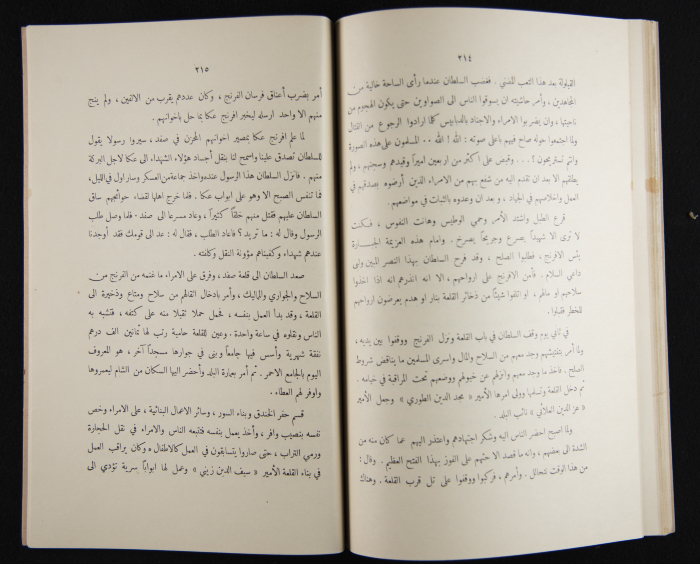 ٢١٤
القيلولة بعد هذا التعب المضني . فغضب السلطان عندما رأى الساحة خالية من
المجاهدين ، وأمر حاشيته ان يسوقوا الناس الى الصواوين حتى يكون الهجوم من
ناحيتها ، وان يضربوا الامراء والاجناد بالدبابيس كلما ارادوا الرجوع من القتال
ولما اجتمعوا حوله صاح فيهم باعلى صوته : الله ! الله ٠٠ المسلمون على هذه الصورة
وانتم تستريحون ! . . . وقبض على اكثر من اربعين اميراً وقيدهم وسجنهم ، ولم
يطلقهم الا بعد ان تقدم اليه من شفع بهم من الامراء الذين أرضوه بصدقهم في
العمل واخلاصهم في الجهاد ، و بعد ان وعدوه بالثبات في مواضعهم .
قرع الطبل واشتد الأمر وحمي الوطيس وهانت النفوس ، فكنت
لا ترى الا شهيداً يصرع وجريحاً يصرخ . وامام هذه العزيمة الجبارة
يئس الافرنج ، فطلبوا الصلح ، وقد فرح السلطان بهذا النصر المبين ولبى
داعي السلام . فأمن الافرنج على ارواحهم ، الا انه انذرهم انه اذا اخذوا
سلاحهم او مالهم ، او اتلفوا شيئاً من ذخائر القلعة بنار او هدم يعرضون ارواحهم
للخطر فقبلوا .
في ثاني يوم وقف السلطان في باب القلعة ونزل الفرنج ووقفوا بين يديه ،
ولما أمر بتفتيشهم وجد معهم من السلاح والمال واسرى المسلمين ما يناقض شروط
الصلح . فأخذ ما وجد معهم وانزلهم عن خيولهم ووضعهم تحت المراقبة في خيامه .
ثم دخل القلعة وتسلمها وولى امرها الأمير « مجد الدين الطوري » وجعل الأمير
« عز الدين العلائي » نائب البلد .
ولما اصبح احضر الناس اليه وشكر اجتهادهم واعتذر اليهم عما كان منه من
الشدة الى بعضهم ، وانه ما قصد الا حثهم على الفوز بهذا الفتح العظيم . وقال :
من هذا الوقت نتحالل . وأمرهم ، فركبوا ووقفوا على تل قرب القلعة . وهناك
٢١٥
أمر بضرب أعناق فرسان الفرنج ، وكان عددهم يقرب من الالفين ، ولم ينج
منهم الا واحد ارسله ليخبر افرنج عكا بما حل باخوانهم .
لما علم افرنج عكا بمصير اخوانهم المحزن في صفد ، سيروا رسولا يقول
للسلطان تصدق علينا واسمح لنا بنقل أجساد هؤلاء الشهداء الى عكا لاجل البركة
منهم . فأنزل السلطان هذا الرسول عنده واخذ جماعة من العسكر وسار اول في الليل،
فما تنفس الصبح الا وهو على ابواب عكا . فلما خرج اهلها لقضاء حوائجهم ساق
السلطان عليهم فقتل منهم خلقاً كثيراً ، وعاد مسرعا الى صفد . فلما وصل طلب
الرسول وقال له : ما تريد ؟ فاعاد الطلب ، فقال له : عد الى قومك فقد أوجدنا
عندهم شهداء وكفيناهم مؤونة النقل وكلفته .
صعد السلطان الى قلعة صفد ، وفرق على الامراء ما غنمه من الفرنج من
السلاح والجواري والماليك ، وأمر بادخال القائم من سلاح ومتاع وذخيرة الى
القلعة ، وقد بدأ العمل بنفسه ، فحمل حملا ثقيلا منه على كتفه ، فتشبه به
الناس ونقلوه في ساعة واحدة . وعين للقلعة حامية رتب لها ثمانين الف درهم
نفقة شهرية وأسس فيها جامعاً وبنى في جوارها مسجداً آخر ، هو المعروف
اليوم بالجامع الاحمر . ثم أمر بعمارة البلد وأحضر اليها السكان من الشام ليعمروها
واوفر لهم العطاء .
قسم حفر الخندق وبناء السور ، وسائر الاعمال البنائية ، على الامراء وخص
نفسه بنصيب وافر ، وأخذ يعمل بنفسه فتابعه الناس والامراء في نقل الحجارة
ورمي التراب ، حتى صاروا يتسابقون في العمل كالاطفال ٠ وكان يراقب العمل
في بناء القلعة الأمير « سيف الدين زيني » وعمل لها ابواباً سرية تؤدي الى